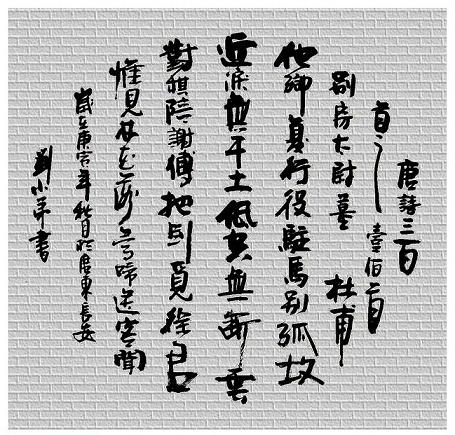 唐詩三百
首之壹佰首
別房太尉墓 杜甫
他鄉复行役駐馬別孤坟
近淚無干土低空無斷雲
對棋陪謝傅把劍覓徐君
惟見林花落鶯啼送客聞
歲在庚寅年秋月於廣東長安
劉小平書